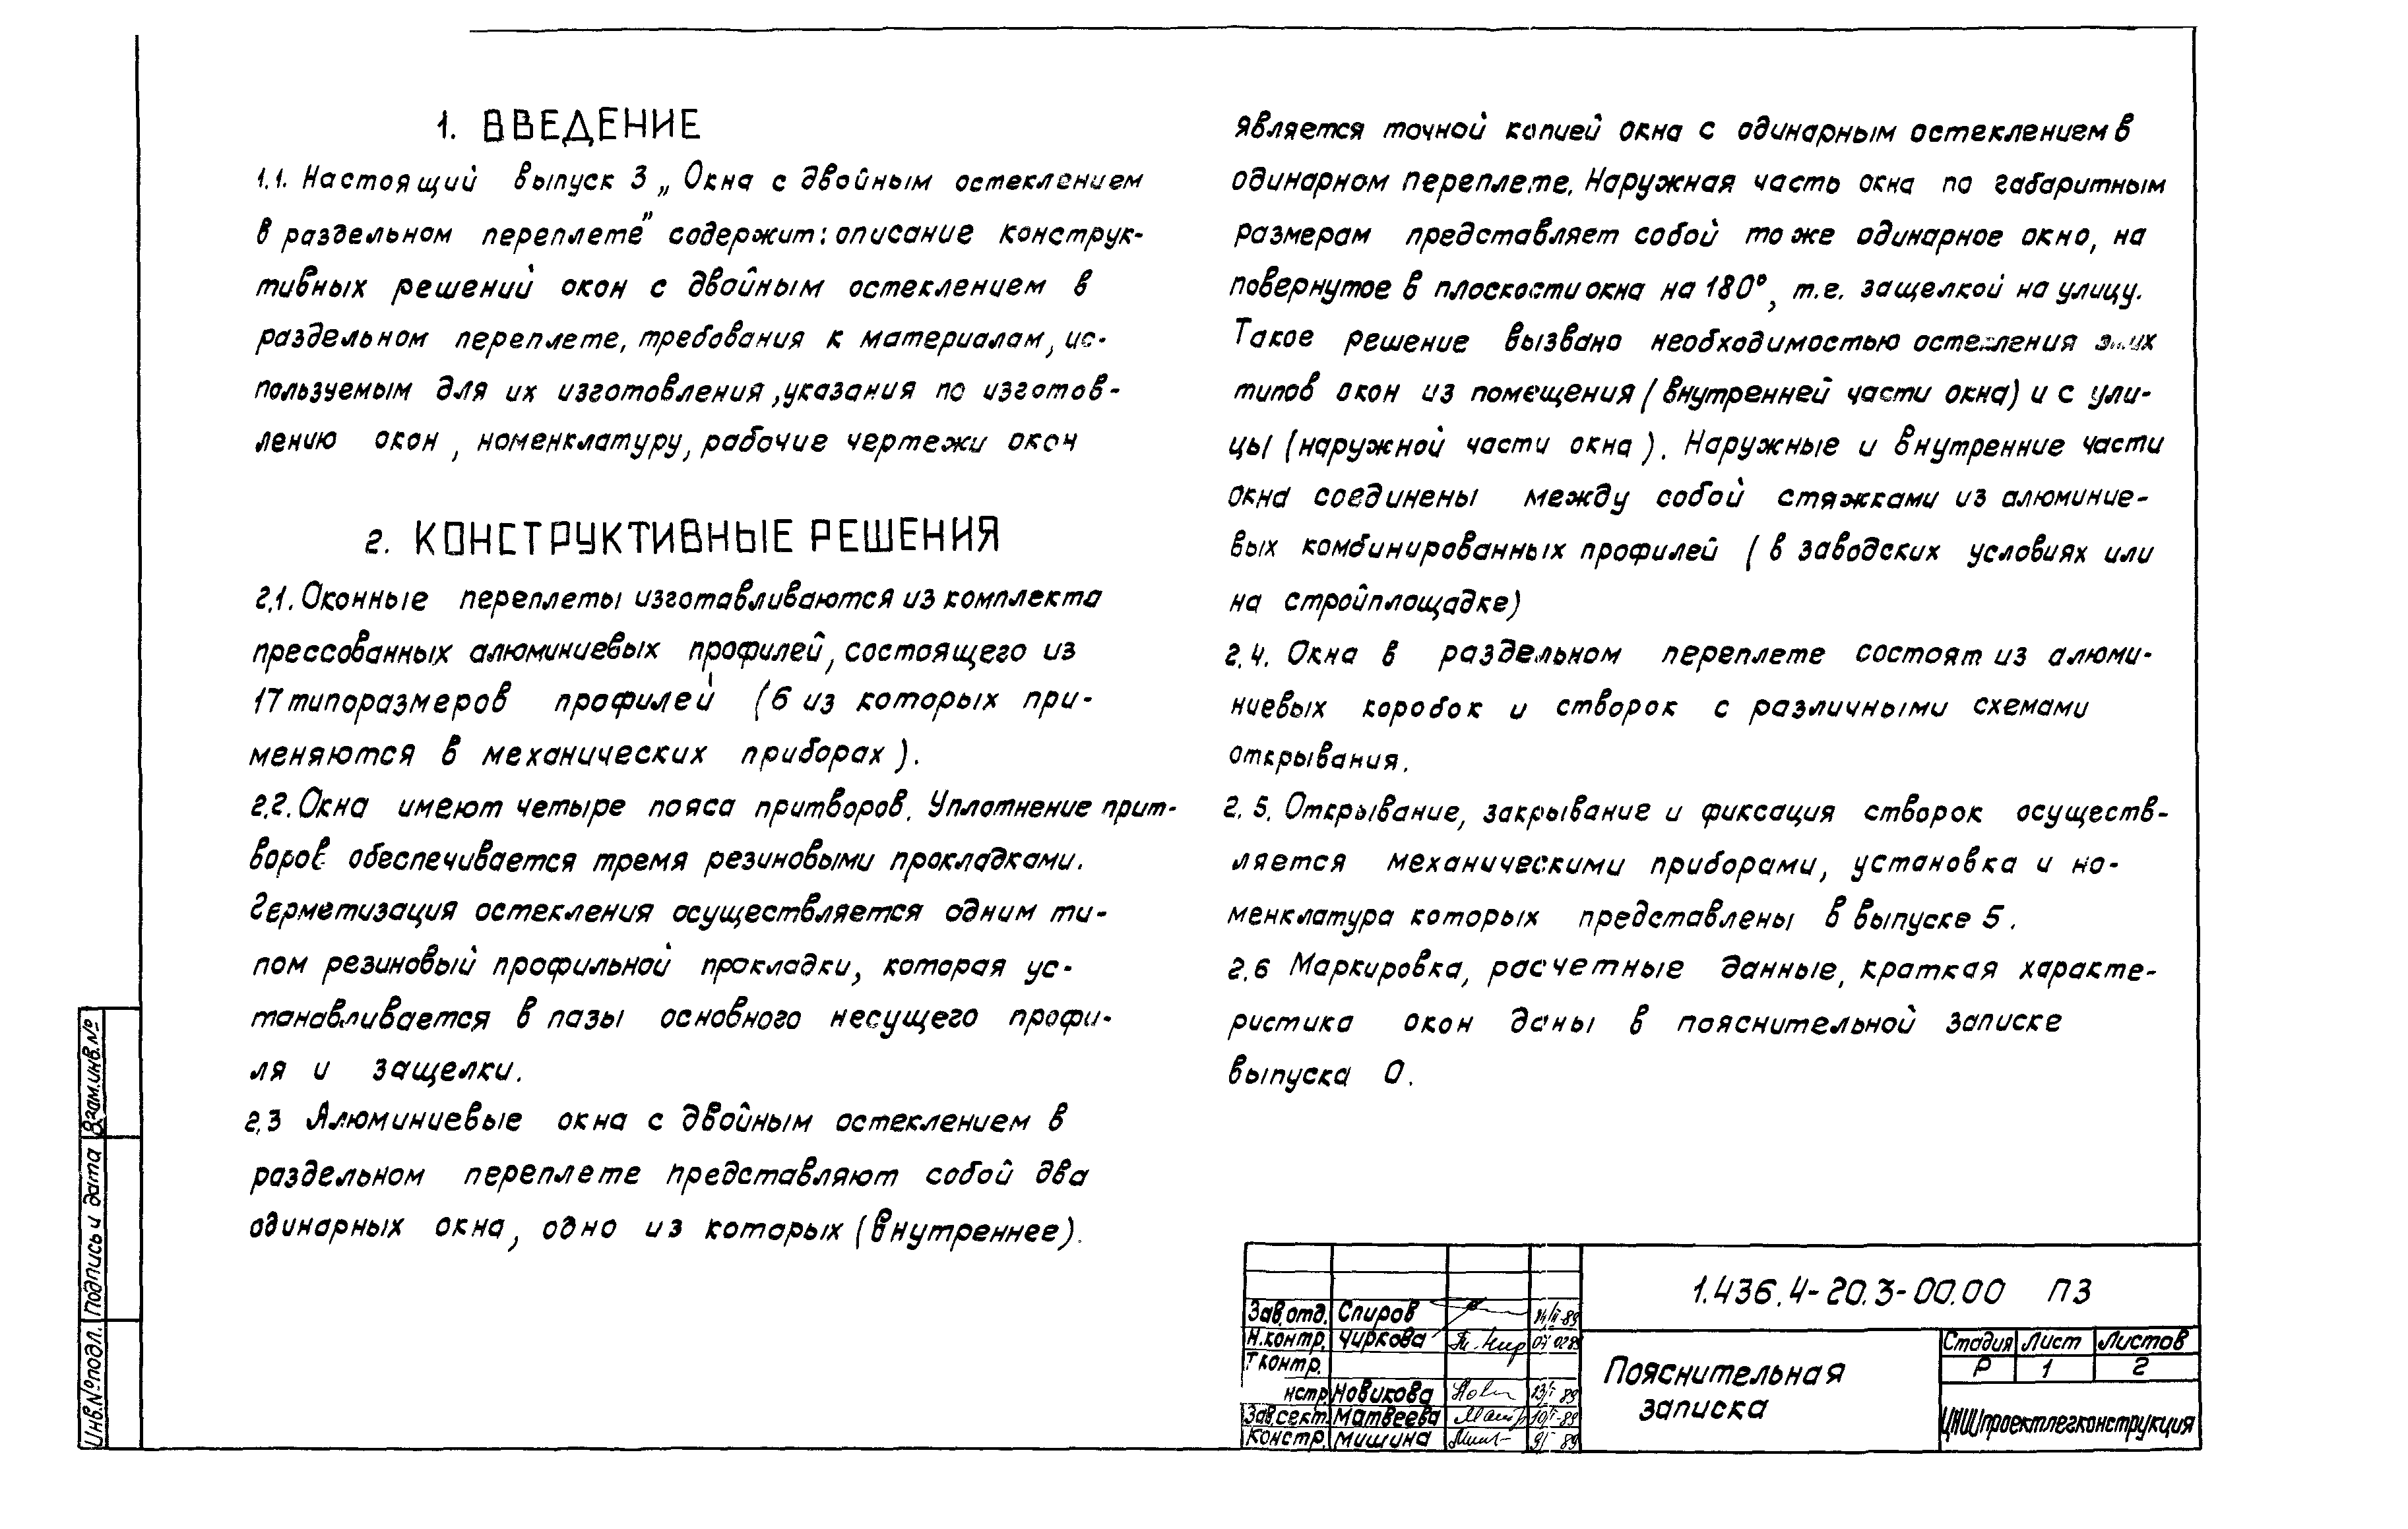 1. ВВЕДЕНИЕ
1.1. Настоящий выпуск 3 „Окна с двойным остеклением
в раздельном переплете" содержит: описание конструк-
тивных решений окон с двойным остеклением в
раздельном переплете, требования к материалам, ис-
пользуемым для их изготовления, указания по изготов-
лению окон, номенклатуру, рабочие чертежи окон
2. КОНСТРУКТИВНЫЕ РЕШЕНИЯ
2.1. Оконные переплеты изготавливаются из комплекта
прессованных алюминиевых профилей, состоящего из
17 типоразмеров профилей (6 из которых при-
меняются в механических приборах).
2.2. Окна имеют четыре пояса притворов. Уплотнение прит-
воров обеспечивается тремя резиновыми прокладками.
Герметизация остекления осуществляется одним ти-
пом резиновый профильной прокладки, которая ус-
танавливается в пазы основного несущего профи-
ля и защелки.
2.3 Алюминиевые окна с двойным остеклением в
раздельном переплете представляют собой два
одинарных окна, одно из которых (внутреннее).
является точной копией окна с одинарным остеклением в
одинарном переплете. Наружная часть окна по габаритным
размерам представляет собой то же одинарное окно, на
повернутое в плоскости окна на 180°, т.е. защелкой на улицу.
Такое решение вызвано необходимостью остекления этих
типов окон из помещения (внутренней части окна) и с ули-
цы (наружной части окна). Наружные и внутренние части
окна соединены между собой стяжками из алюминие-
вых комбинированных профилей (в заводских условиях или
на стройплощадке)
2.4. Окна в раздельном переплете состоят из алюми-
ниевых коробок и створок с различными схемами
открывания.
2.5. Открывание, закрывание и фиксация створок осуществ-
ляется механическими приборами, установка и но-
менклатура которых представлены в выпуске 5.
2.6 Маркировка, расчетные данные, краткая характе-
ристика окон даны в пояснительной записке
выпуска 0.
Взам.инв.№
Подпись и дата
Инв.№подл.
1.436.4-20.3-00.00 ПЗ
Зав.отд. Спиров
Н.контр. Чиркова 07 02 89
Т контр.
нстр. Новикова
Зав.сект. Матвеева
Констр. Мишина
Пояснительная
записка
Стадия Лист Листов
Р 1 2
ЦНИИпроектлегконструкция